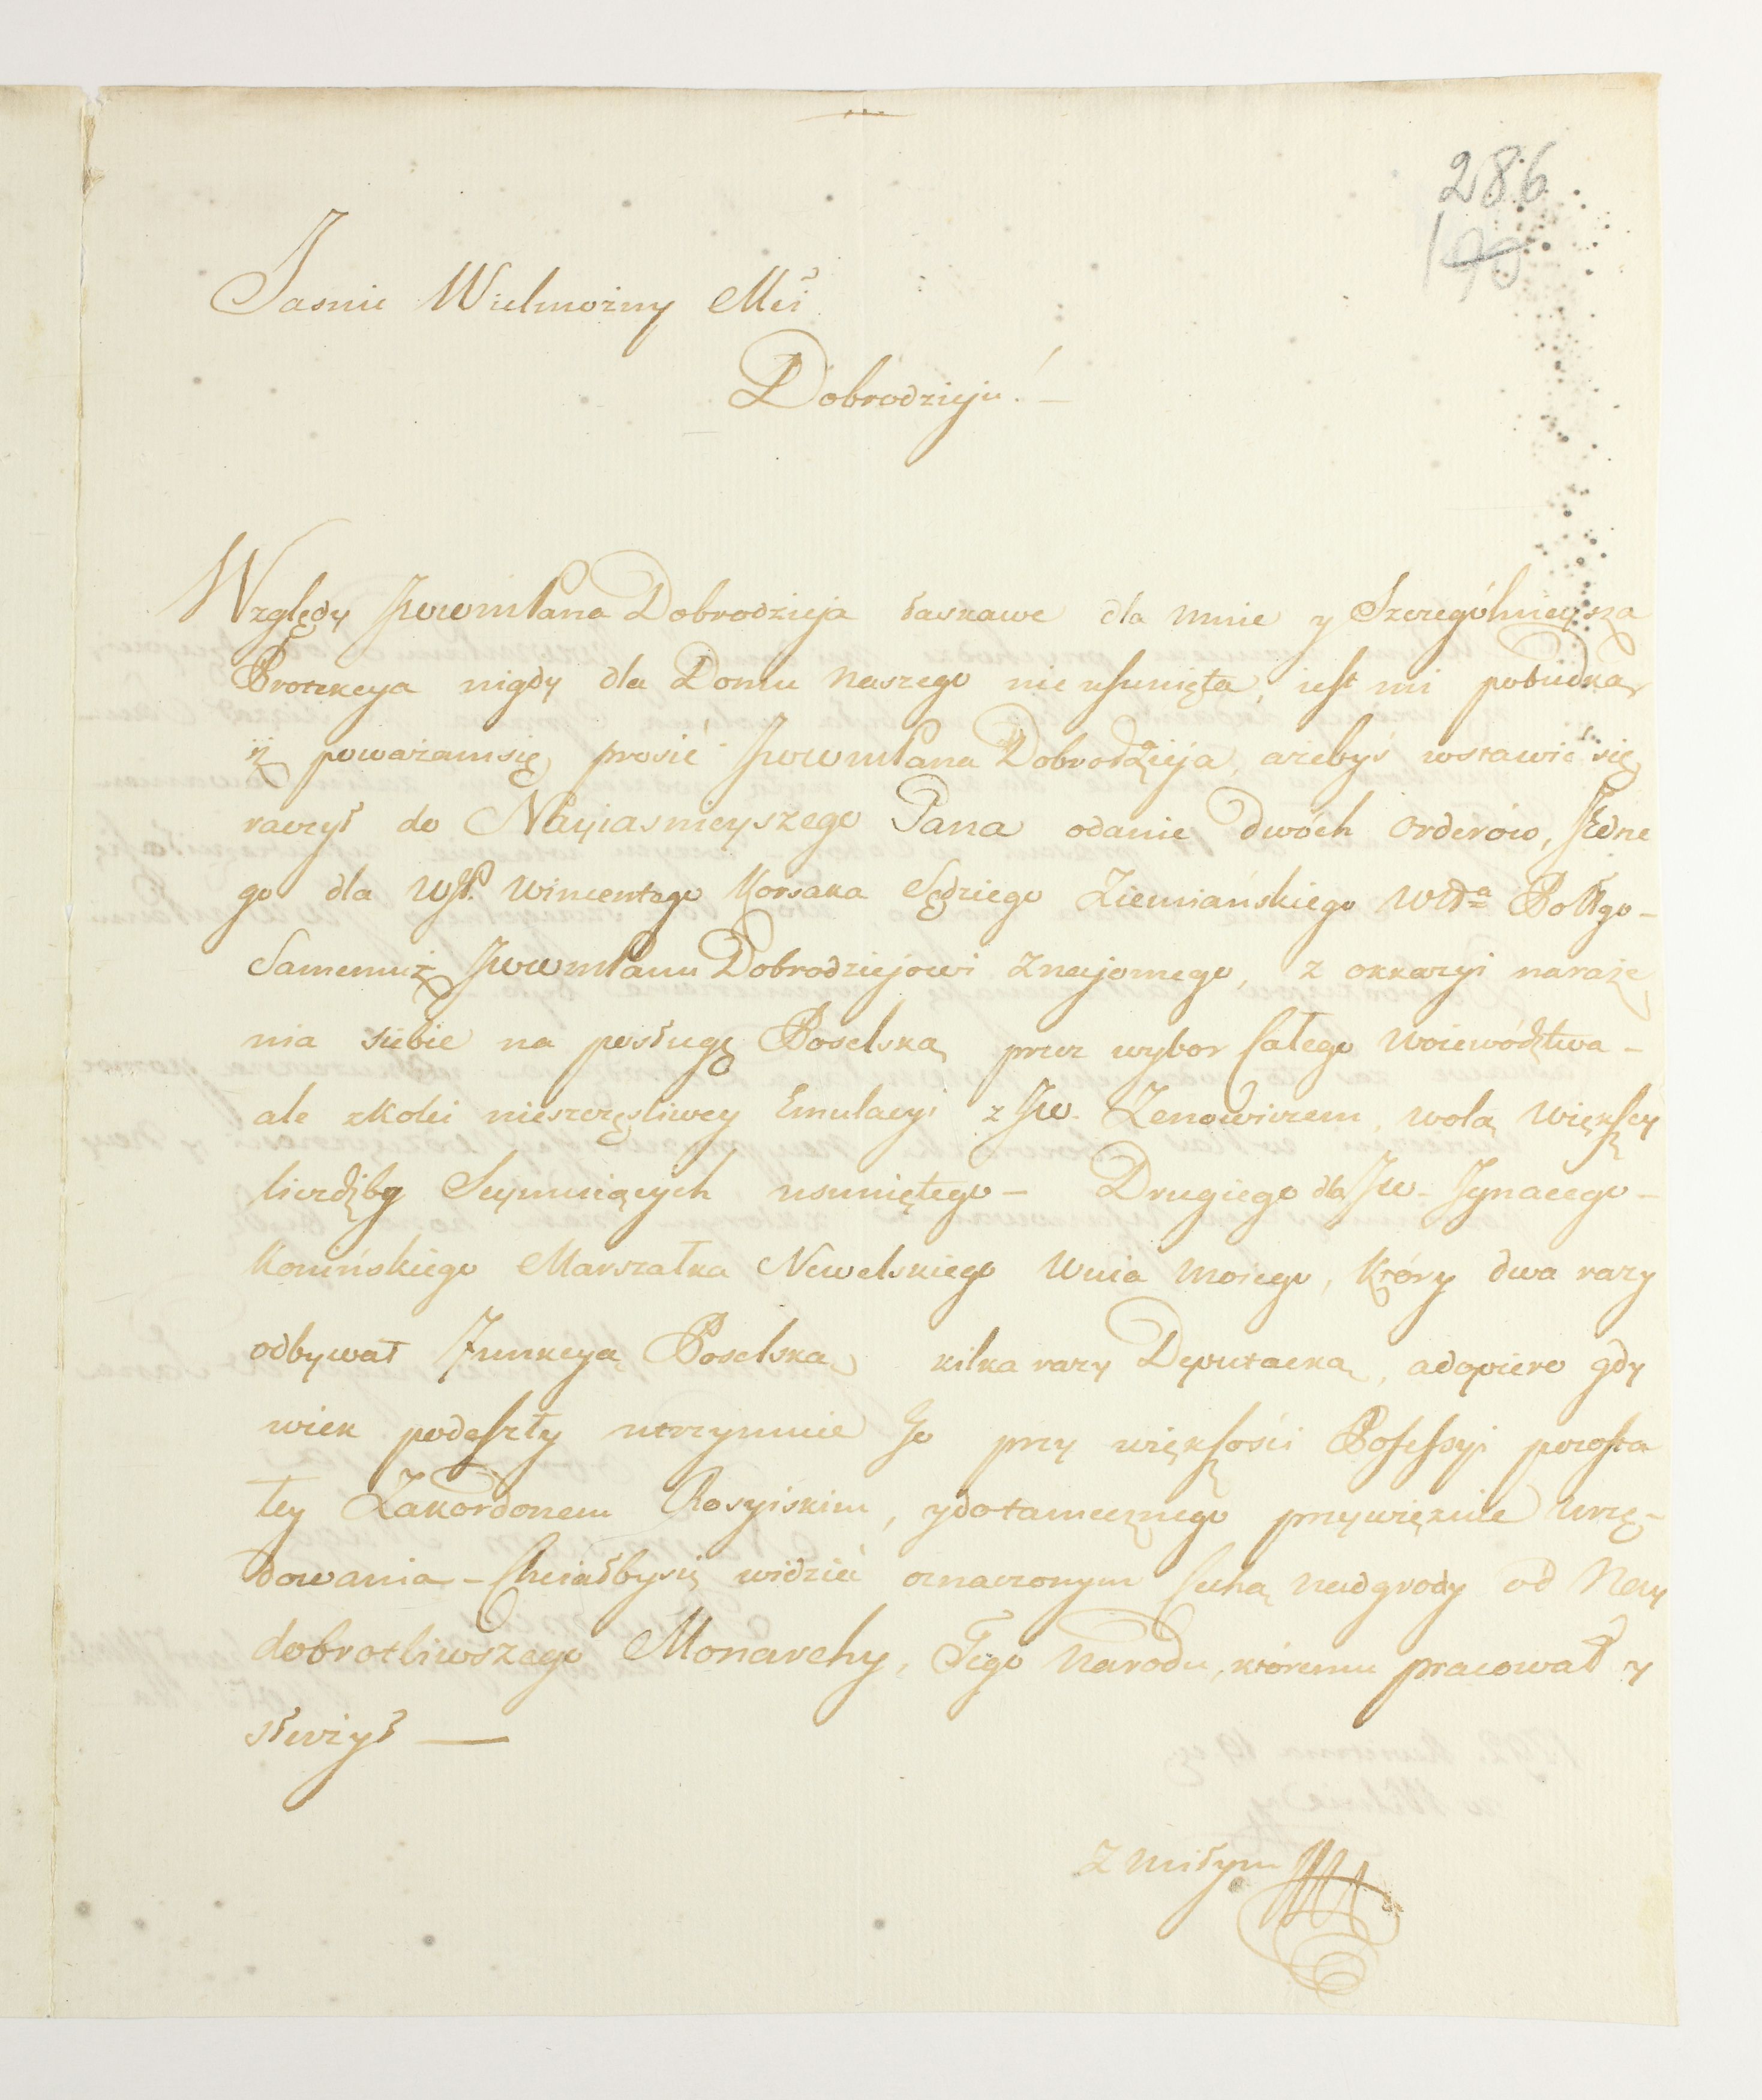 286
190
Jasnie Wielmożny Mci
Dobrodzieju! –
Względy JwwmPana Dobrodzieja łaskawe dla mnie y Szczegulnieysza
Protekcya nigdy dla Domu naszego nie usunięta, iest mi pobudką
iż poważamsię prosić JwwmPana Dobrodzieja, ażebyś wstawić się
raczył do Nayiasnieyszego Pana odanie dwóch orderów, Jedne
go dla WJP. Wincentego Korsaka Sędziego Ziemiańskiego Wda Połłgo –
Samemuż JwwmPanu Dobrodziejowi znajomego, z okkazyi naraże
nia siebie na posługę Poselską przez wybor Całego Woiewództwa –
ale zkolei nieszczęsliwey Emulacyi z Jw. Zenowiczem, wolą większey
liczby Seymuiących usuniętego – Drugiego dla Jw. Jgnacego –
Konińskiego Marszałka Newelskiego Wuia moiego, który dwa razy
odbywał Funkcyą Poselską kilka razy Deputacką, adopiero gdy
wiek podeszły utrzymuie Go przy większości Possessyi pozosta
łey Zakordonem Rosyiskim, ydotamecznego przywięzuie Urzę-
dowania – Chciałbysię widzieć oznaczonym Cechą nadgrody od Nay
dobrotliwszego Monarchy, Tego Narodu, któremu pracował y
służył —
Z miłym